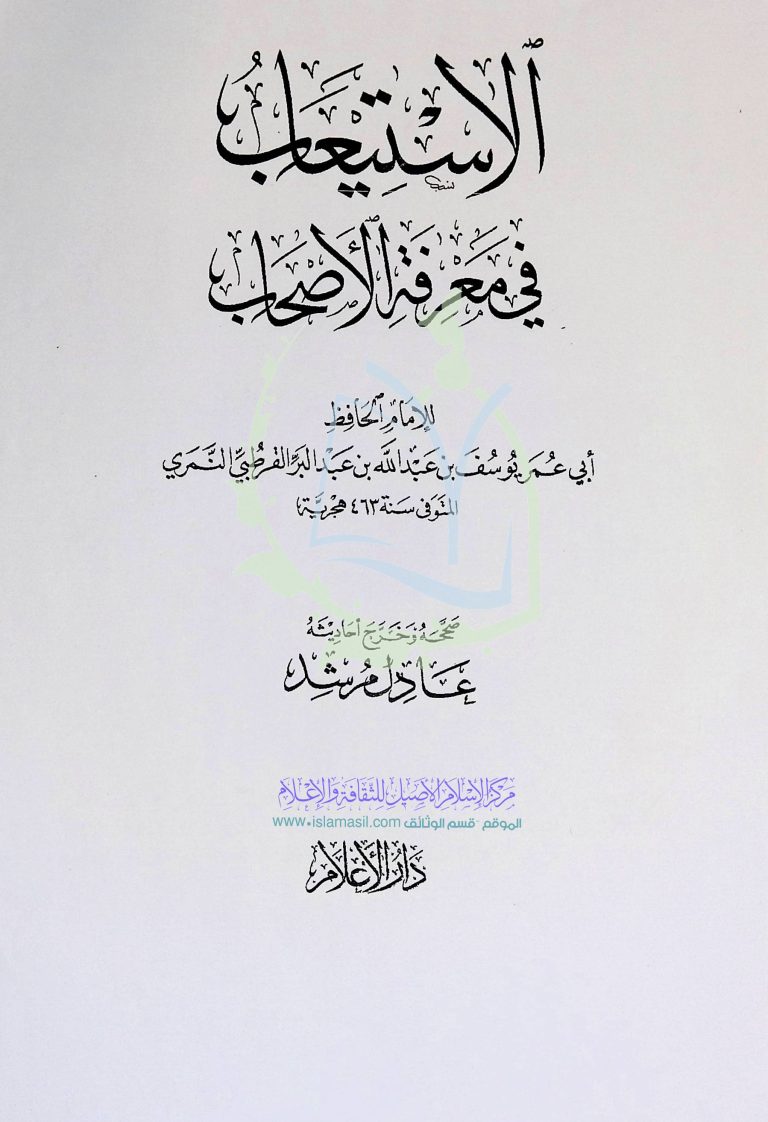 الاسْتِيعَابُ
فِي مَعْرِفَةِ الأَصْحَابِ
لِلإِمَامِ الحَافِظِ
أبي عُمَر يُوسُفَ بن عَبْدِ اللَّه بن عَبْدِ البَرِّ القُرطُبيِّ النَّمَري
المتَوفى سَنَة ٤٦٣ هِجْرِيَّة
صَحَّحَهُ وَخَرَّجَ أحَادِيثَهُ
عَادِل مُرشِد
مركز الإسلام الأصيل للثقافة والإعلام
الموقع - قسم الوثائق www.islamasil.com
دَارُ الأَعْلَام